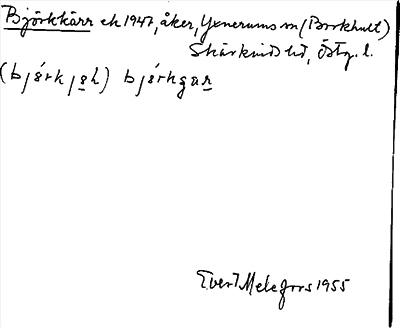 Björkkärr ek 1947, åker, Yxnerums sn (Borkhult)
Skärkinds hd, Östg. l.
(bjö́rkjek) bjö́rkgar
Evert Melefors 1955